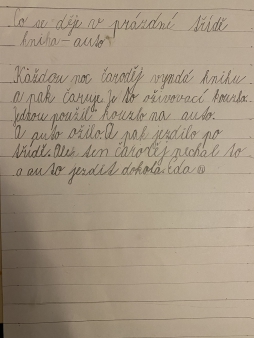 Co se děje v prázdné třídě
kniha – auto
Každou noc čaroděj vyndá knihu
a pak čaruje. Je to oživovací kouzlo.
Jednou použil kouzlo na auto.
A auto ožilo. A pak jezdilo po
třídě. Ale ten čaroděj nechal to
a auto jezdit dokola